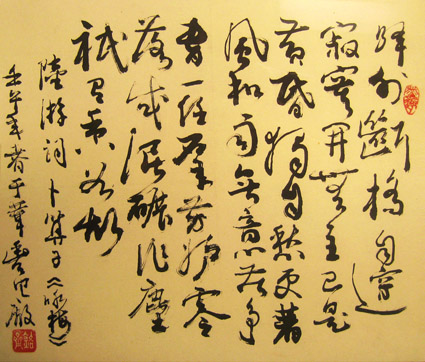 驛外斷橋邊
寂寞開無主已是
黄昏獨自愁更著
風和雨無意苦爭
春一任羣芳妒零
落成泥碾作塵
祇有香如故
陸游詞卜算子《咏梅》
壬午年春于華